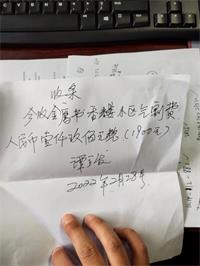 收条
今收金房书香楼小区气割费
人民币壹仟玖佰元整（1900元）
2022年2月28号